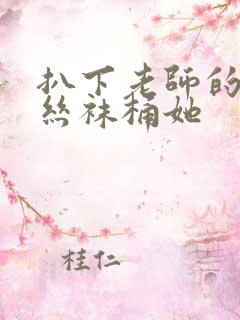 扒下老師的
絲袜桶她
桂仁